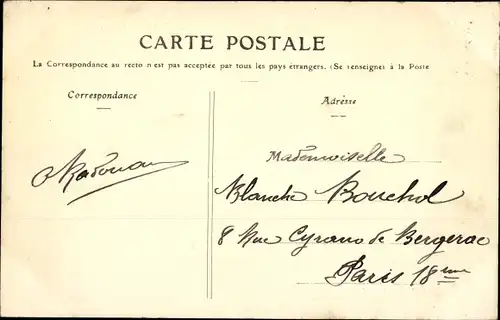 CARTE POSTALE
La Correspondance au recto n'est pas acceptée par tous les pays étrangers. (Se renseigner à la Poste
Correspondance
Adresse
Mademoiselle
Blanche Bouchol
8 Rue Cyrano de Bergerac
Paris 18eme